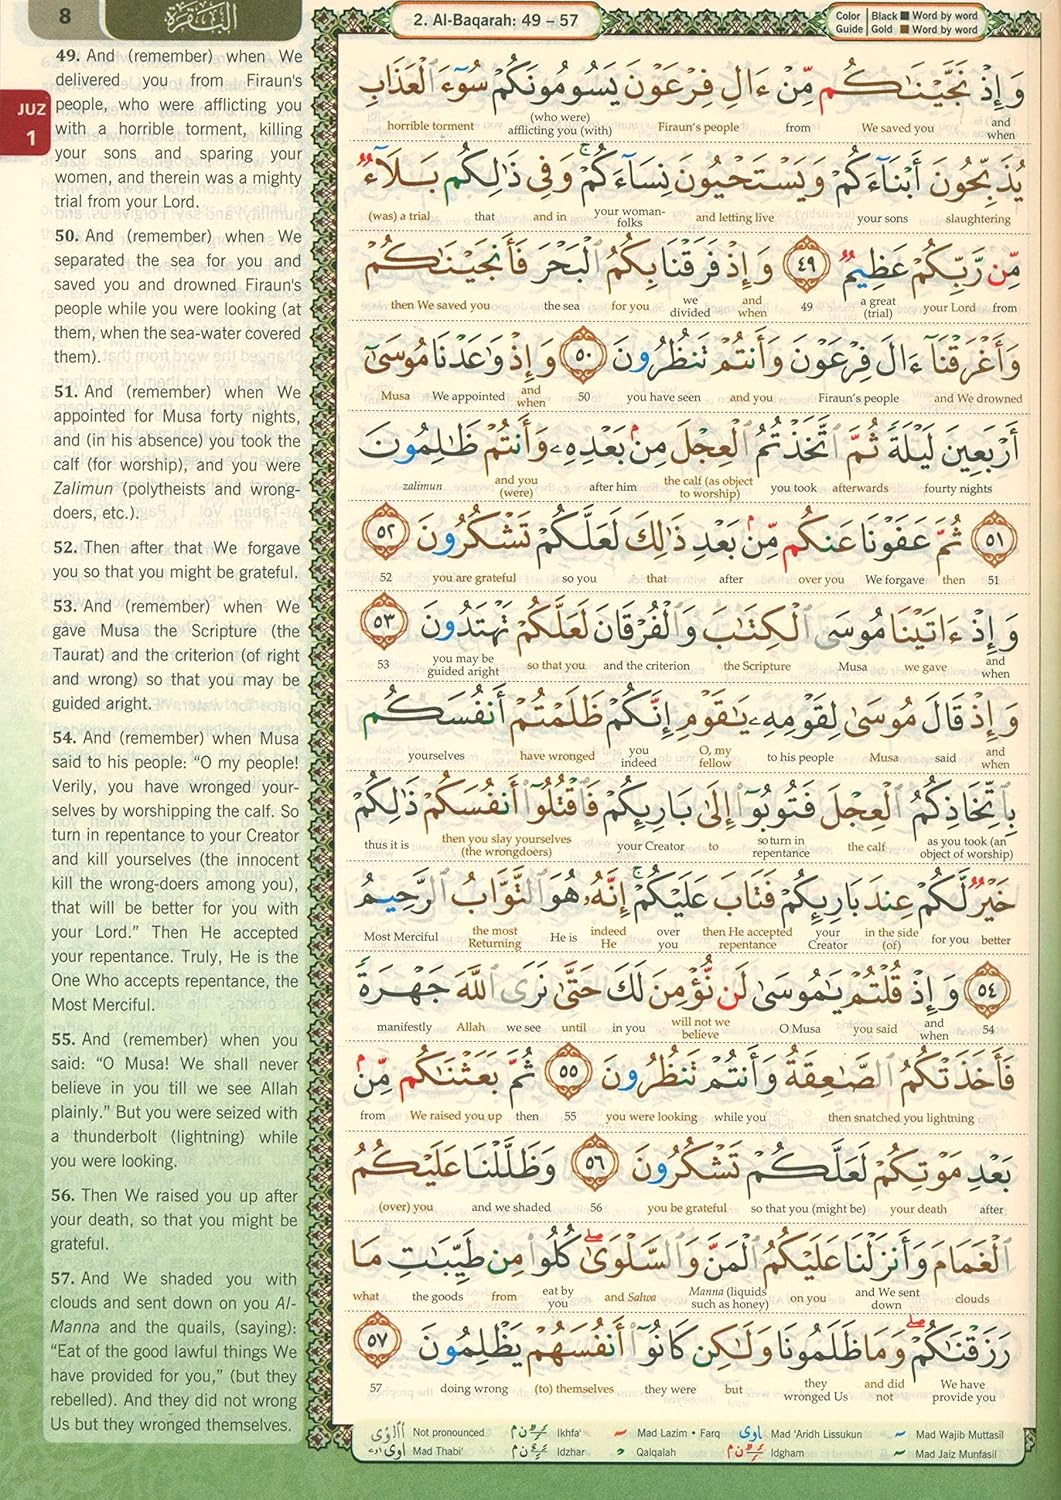 8
البقرة
2. Al-Baqarah: 49 – 57
Color Guide | Black Word by word
Gold Word by word
JUZ
1
49. And (remember) when We
delivered you from Firaun's
people, who were afflicting you
with a horrible torment, killing
your sons and sparing your
women, and therein was a mighty
trial from your Lord.
50. And (remember) when We
separated the sea for you and
saved you and drowned Firaun's
people while you were looking (at
them, when the sea-water covered
them).
51. And (remember) when We
appointed for Musa forty nights,
and (in his absence) you took the
calf (for worship), and you were
Zalimun (polytheists and wrong-
doers, etc.).
52. Then after that We forgave
you so that you might be grateful.
53. And (remember) when We
gave Musa the Scripture (the
Taurat) and the criterion (of right
and wrong) so that you may be
guided aright.
54. And (remember) when Musa
said to his people: “O my people!
Verily, you have wronged your-
selves by worshipping the calf. So
turn in repentance to your Creator
and kill yourselves (the innocent
kill the wrong-doers among you),
that will be better for you with
your Lord.” Then He accepted
your repentance. Truly, He is the
One Who accepts repentance, the
Most Merciful.
55. And (remember) when you
said: “O Musa! We shall never
believe in you till we see Allah
plainly.” But you were seized with
a thunderbolt (lightning) while
you were looking.
56. Then We raised you up after
your death, so that you might be
grateful.
57. And We shaded you with
clouds and sent down on you Al-
Manna and the quails, (saying):
“Eat of the good lawful things We
have provided for you,” (but they
rebelled). And they did not wrong
Us but they wronged themselves.
وَإِذْ نَجَّيْنَـٰكُم مِّنْ ءَالِ فِرْعَوْنَ يَسُومُونَكُمْ سُوٓءَ ٱلْعَذَابِ
horrible torment (who were) afflicting you (with) Firaun's people from We saved you and when
يُذَبِّحُونَ أَبْنَآءَكُمْ وَيَسْتَحْيُونَ نِسَآءَكُمْ ۚ وَفِى ذَٰلِكُم بَلَآءٌ
(was) a trial that and in your woman-folks and letting live your sons slaughtering
مِّن رَّبِّكُمْ عَظِيمٌ ٤٩ وَإِذْ فَرَقْنَا بِكُمُ ٱلْبَحْرَ فَأَنجَيْنَـٰكُمْ
then We saved you the sea for you we divided and when 49 a great (trial) your Lord from
وَأَغْرَقْنَآ ءَالَ فِرْعَوْنَ وَأَنتُمْ تَنظُرُونَ ٥٠ وَإِذْ وَٰعَدْنَا مُوسَىٰٓ
Musa We appointed and when 50 you have seen and you Firaun's people and We drowned
أَرْبَعِينَ لَيْلَةً ثُمَّ ٱتَّخَذْتُمُ ٱلْعِجْلَ مِنۢ بَعْدِهِۦ وَأَنتُمْ ظَـٰلِمُونَ
zalimun and you (were) after him the calf (as object to worship) you took afterwards fourty nights
٥١ ثُمَّ عَفَوْنَا عَنكُم مِّنۢ بَعْدِ ذَٰلِكَ لَعَلَّكُمْ تَشْكُرُونَ ٥٢
52 you are grateful so you that after over you We forgave then 51
وَإِذْ ءَاتَيْنَا مُوسَى ٱلْكِتَـٰبَ وَٱلْفُرْقَانَ لَعَلَّكُمْ تَهْتَدُونَ ٥٣
53 you may be guided aright so that you and the criterion the Scripture Musa we gave and when
وَإِذْ قَالَ مُوسَىٰ لِقَوْمِهِۦ يَـٰقَوْمِ إِنَّكُمْ ظَلَمْتُمْ أَنفُسَكُم
yourselves have wronged you indeed O, my fellow to his people Musa said and when
بِٱتِّخَاذِكُمُ ٱلْعِجْلَ فَتُوبُوٓا۟ إِلَىٰ بَارِئِكُمْ فَٱقْتُلُوٓا۟ أَنفُسَكُمْ ذَٰلِكُمْ
thus it is then you slay yourselves (the wrongdoers) your Creator to so turn in repentance the calf as you took (an object of worship)
خَيْرٌ لَّكُمْ عِندَ بَارِئِكُمْ فَتَابَ عَلَيْكُمْ ۚ إِنَّهُۥ هُوَ ٱلتَّوَّابُ ٱلرَّحِيمُ
Most Merciful the most Returning He is indeed He over you then He accepted repentance your Creator in the side (of) for you better
٥٤ وَإِذْ قُلْتُمْ يَـٰمُوسَىٰ لَن نُّؤْمِنَ لَكَ حَتَّىٰ نَرَى ٱللَّهَ جَهْرَةً
manifestly Allah we see until in you will not we believe O Musa you said and when 54
فَأَخَذَتْكُمُ ٱلصَّـٰعِقَةُ وَأَنتُمْ تَنظُرُونَ ٥٥ ثُمَّ بَعَثْنَـٰكُم مِّنۢ
from We raised you up then 55 you were looking while you then snatched you lightning
بَعْدِ مَوْتِكُمْ لَعَلَّكُمْ تَشْكُرُونَ ٥٦ وَظَلَّلْنَا عَلَيْكُمُ
(over) you and we shaded 56 you be grateful so that you (might be) your death after
ٱلْغَمَامَ وَأَنزَلْنَا عَلَيْكُمُ ٱلْمَنَّ وَٱلسَّلْوَىٰ ۖ كُلُوا۟ مِن طَيِّبَـٰتِ مَا
what the goods from eat by you and Salwa Manna (liquids such as honey) on you and We sent down clouds
رَزَقْنَـٰكُمْ ۖ وَمَا ظَلَمُونَا وَلَـٰكِن كَانُوٓا۟ أَنفُسَهُمْ يَظْلِمُونَ ٥٧
57 doing wrong (to) themselves they were but they wronged Us and did not We have provide you
Not pronounced Ikhfa' Mad Lazim • Farq Mad 'Aridh Lissukun Mad Wajib Muttasil
Mad Thabi' Idzhar Qalqalah Idgham Mad Jaiz Munfasil